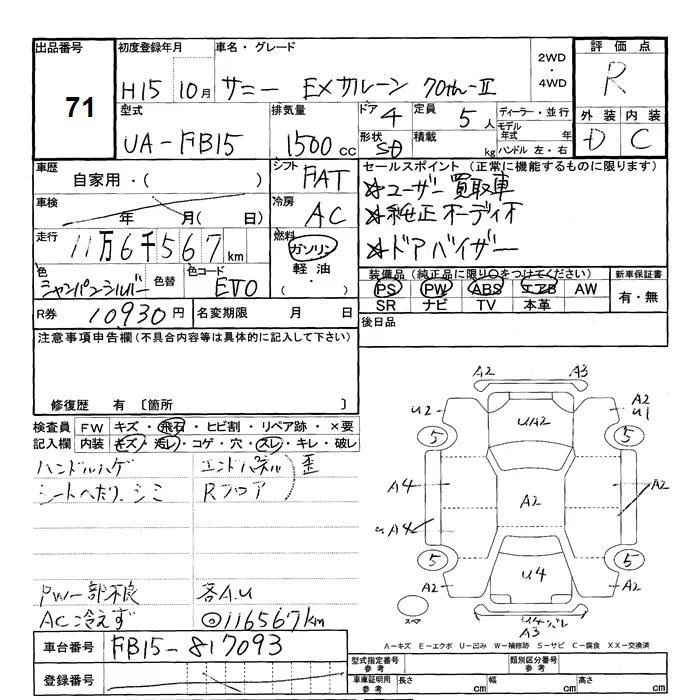 出品番号
71
初度登録年月
H15 10月
車名・グレード
サニー EXサルーン 70th-Ⅱ
2WD
・
4WD
評価点
R
型式
UA-FB15
排気量
1500cc
ドア 4
形状 SD
定員 5人
積載 kg
ディーラー・並行
モデル年式 年
ハンドル 左・右
外装 内装
D C
車歴
自家用・( )
車検
年 月( 日)
走行
11万6千567km
色
シャンパンシルバー
色替
色コード
EV0
シフト
FAT
冷房
AC
燃料
ガソリン
軽油
( ・ )
R券 10930円
名変期限 月 日
セールスポイント(正常に機能するものに限ります)
☆ユーザー買取車
☆純正オーディオ
☆ドアバイザー
装備品(純正品に限り○をつけてください)
PS PW ABS エアB AW
SR ナビ TV 本革
新車保証書
有・無
後日品
注意事項申告欄(不具合内容等は具体的に記入して下さい)
修復歴 有 〔箇所 〕
検査員記入欄
FW キズ・飛石・ヒビ割・リペア跡・×要
内装 キズ・汚レ・コゲ・穴・スレ・キレ・破レ
ハンドルハゲ
シートへたり、シミ
エンドパネル
Rフロア
歪
PW一部不良
ACこ冷えず
各A.U
◎116567km
車台番号 FB15-817093
登録番号
A2 A3
U2 A2
U1
5 5
UA2
A4 A2 A2
UA4
5 5
A2 U4 A2
スペア
U4
A3
A=キズ E=エクボ U=凹み W=補修跡 S=サビ C=腐食 XX=交換済
型式指定番号
参考
類別区分番号
参考
車庫証明用
参考
長さ cm
幅 cm
高さ cm